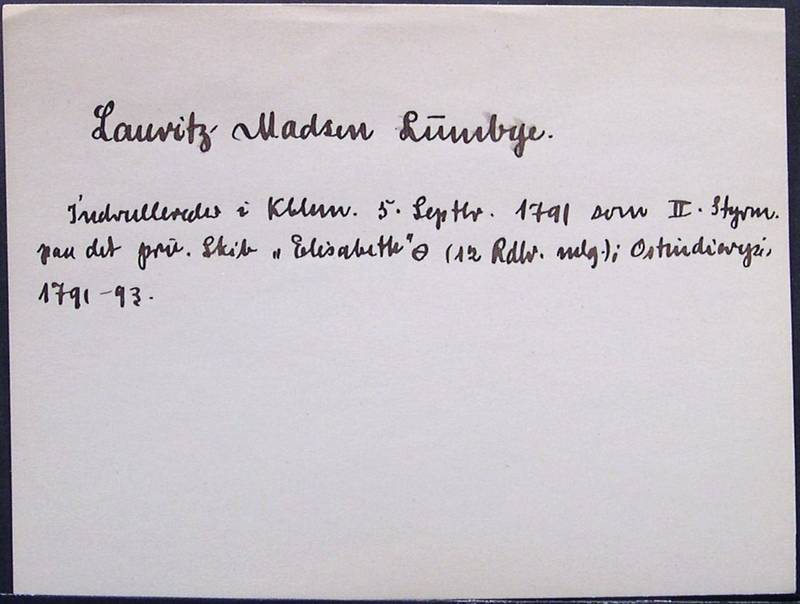 Lauritz Madsen Lumbye.
Indrulleredes i Kbhvn. 5. Septbr. 1791 som II. Styrm.
paa det priv. Skib „Elisabeth" (12 Rdlr. mdg.);
1791-93.